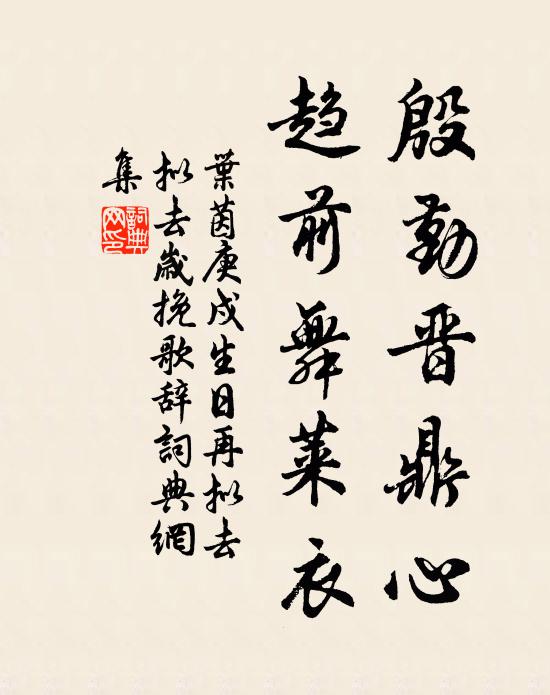 殷勤晋鼎心
趋前舞莱衣
葉茵庚戍生日再拟去
拟去歲挽歌辞詞典網
集
詞典
网印